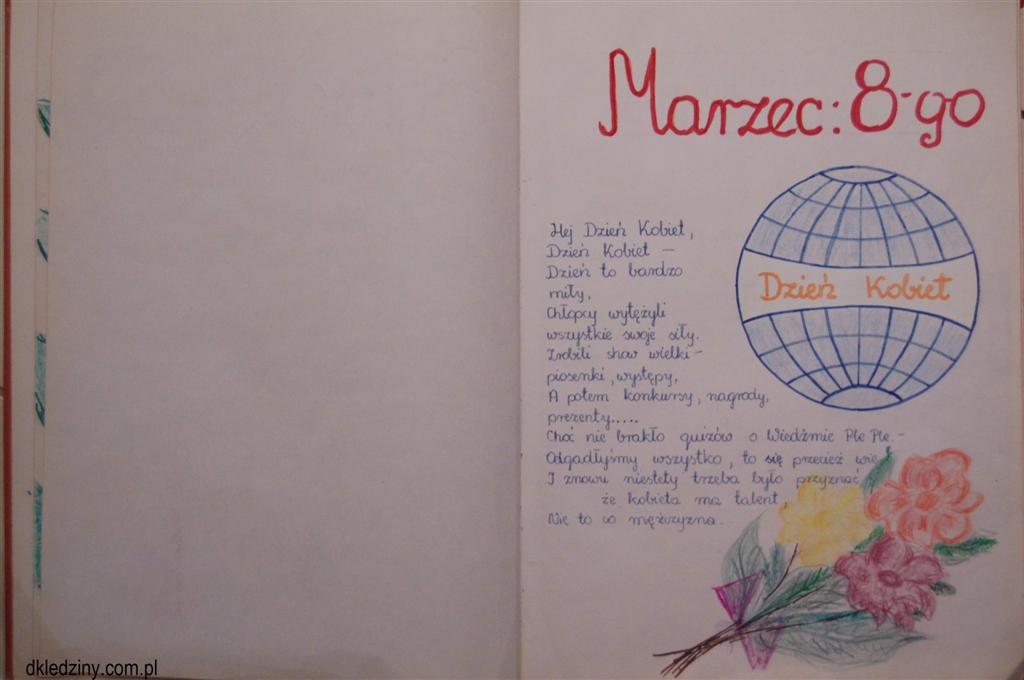 Marzec: 8-go
Dzień Kobiet
Hej Dzień Kobiet,
Dzień Kobiet –
Dzień to bardzo
miły,
Chłopcy wytężyli
wszystkie swoje siły.
Zrobili show wielki –
piosenki, występy,
A potem konkursy, nagrody,
prezenty.....
Choć nie brakło quizów o Wiedźmie Ple Ple. –
Odgadłyśmy wszystko, to się przecież wie!
I znowu niestety trzeba było przyznać,
że kobieta ma talent,
Nie to co mężczyzna.
dkledziny.com.pl